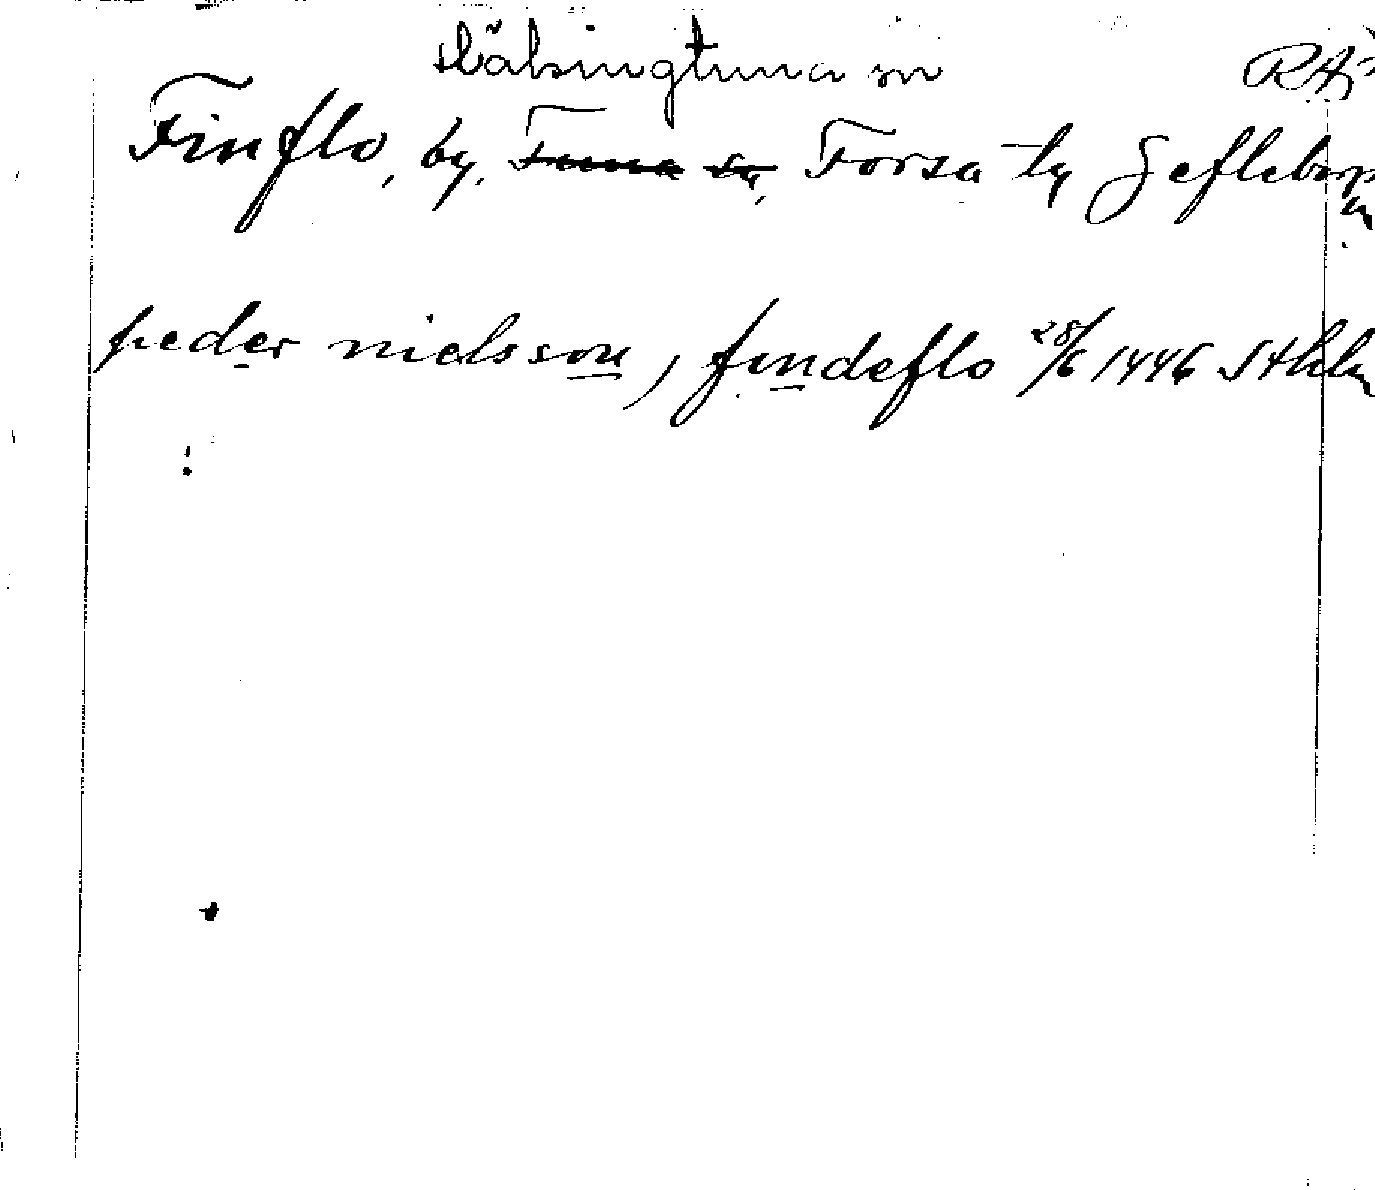 Hälsingtuna sn RAp
Finflo, by, Tuna sn, Forsa tg Gefleborgs
län
peder nielsson, findeflo 28/6 1446 Sthlm